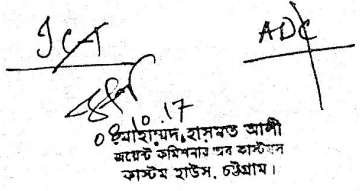 ADC
08.10.17
মোহাম্মদ হাসমত আলী
জয়েন্ট কমিশনার অব কাস্টমস
কাস্টম হাউস, চট্টগ্রাম।